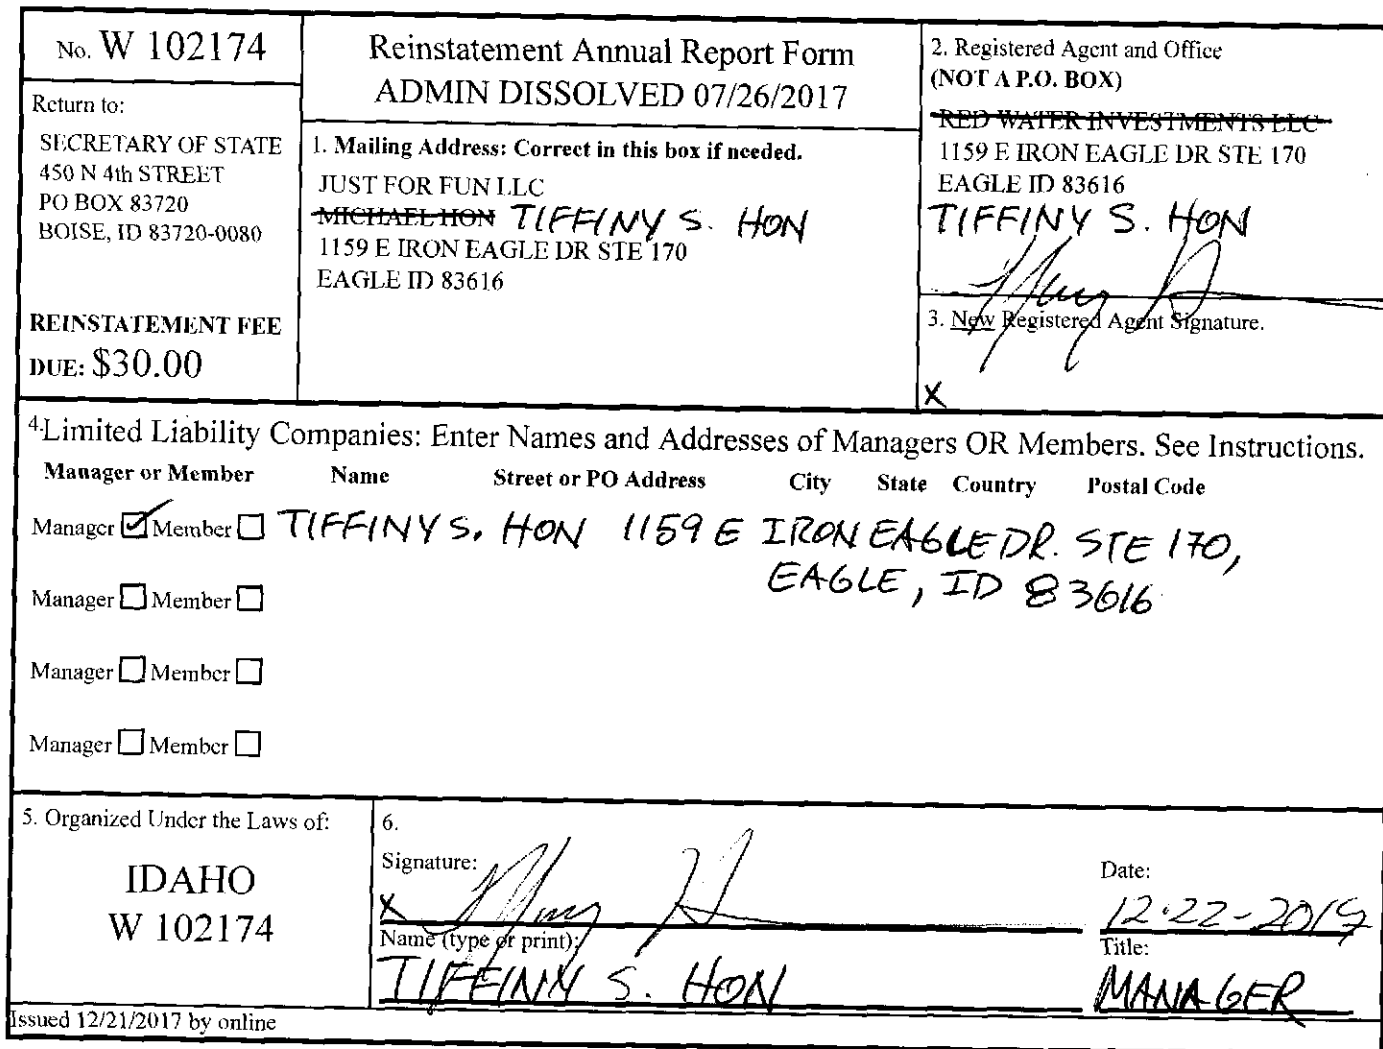 No. W 102174
Return to:
SECRETARY OF STATE
450 N 4th STREET
PO BOX 83720
BOISE, ID 83720-0080
REINSTATEMENT FEE
DUE: $30.00
Reinstatement Annual Report Form
ADMIN DISSOLVED 07/26/2017
1. Mailing Address: Correct in this box if needed.
JUST FOR FUN LLC
MICHAEL HON TIFFINY S. HON
1159 E IRON EAGLE DR STE 170
EAGLE ID 83616
2. Registered Agent and Office
(NOT A P.O. BOX)
RED WATER INVESTMENTS LLC
1159 E IRON EAGLE DR STE 170
EAGLE ID 83616
TIFFINY S. HON
3. New Registered Agent Signature.
X
4. Limited Liability Companies: Enter Names and Addresses of Managers OR Members. See Instructions.
Manager or Member Name Street or PO Address City State Country Postal Code
Manager Member TIFFINY S. HON 1159 E IRON EAGLE DR. STE 170,
EAGLE, ID 83616
Manager Member
Manager Member
Manager Member
5. Organized Under the Laws of:
IDAHO
W 102174
6.
Signature:
X
Name (type or print):
TIFFINY S. HON
Date:
12-22-
Title:
MANAGER
Issued 12/21/2017 by online